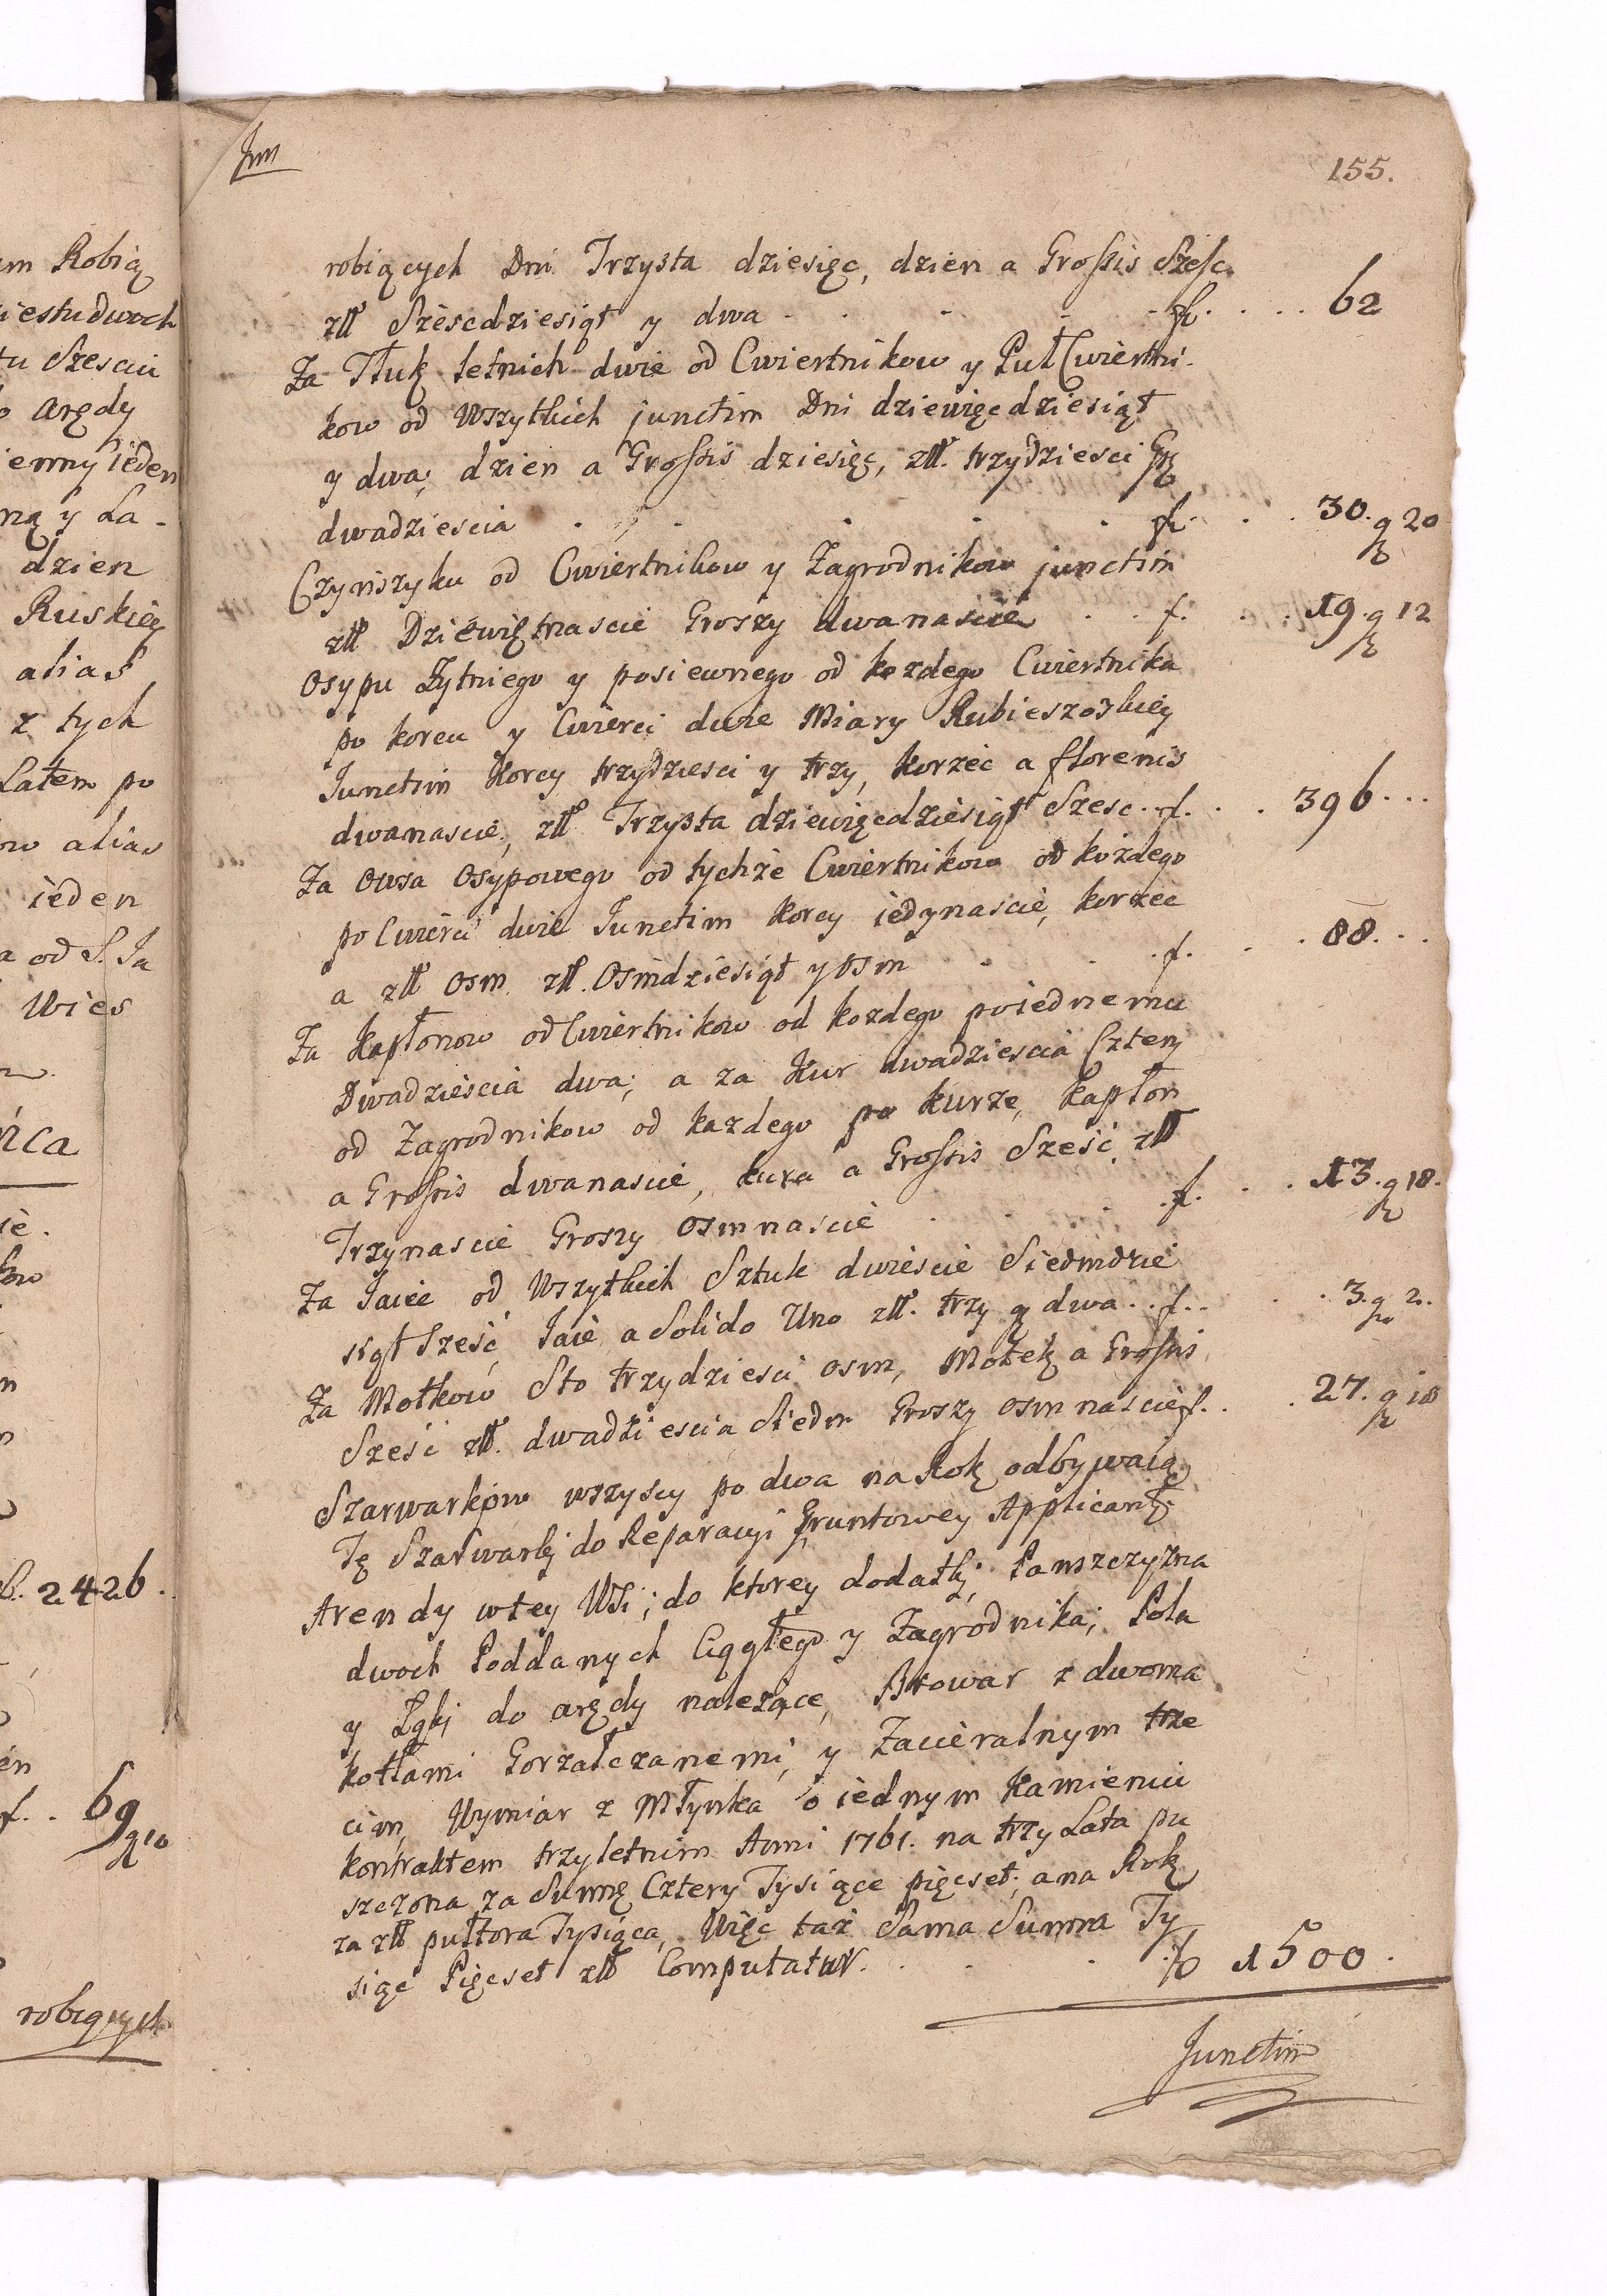 155.
robiących Dni Trzysta dziesięc, dzien a Grossis Szesc
złł Szescdziesiąt y dwa . . . . f. . . . 62
Za Tłuk letnich dwie od Cwiertnikow y Puł Cwiertni-
kow od Wszytkich junctim Dni dziewięcdziesiąt
y dwa; dzien a Grossis dziesięc, złł. trzydziesci Gr
dwadziescia . . . . . f. . . 30. gr 20
Czynszyku od Cwiertnikow y Zagrodnikow junctim
złł Dziewiętnascie Groszy dwanascie . . f. . . 19. gr 12
Osypu Zytniego y posiewnego od kozdego Cwiertnika
po korcu y Cwierci dwie Miary Rubieszoskiey
Junctim Korcy trzydziesci y trzy, korzec a florenis
dwanascie, złł Trzysta dziewięcdziesiąt Szesc . f. . . 396 . . .
Za Owsa Osypowego od tychże Cwiertnikow od kożdego
po Cwierci dwie Junctim korcy iedynascie, korzec
a złł osm. złł. Osmdziesiąt y osm . . . f. . . 88. . .
Za Kapłonow od Cwiertnikow od kozdego poiednemu
Dwadziescia dwa; a za Kur dwadziescia Cztery
od Zagrodnikow od kazdego po kurze, kapłon
a Grossis dwanascie, kura a Grossis Szesc, złł
Trzynascie Groszy osmnascie . . . f. . . 13. gr 18.
Za Jaiec od Wszytkich Sztuk dwiescie Siedmdzie
siąt Szesc, Jaie a Solido Uno złł. trzy gr dwa . . f. . . . 3. gr 2.
Za Motkow Sto trzydziesci osm, Motek a Grossis
Szesc złł. dwadziescia Siedm Groszy osmnascie f. . . 27. gr 18
Szarwarkow wszyscy po dwa na Rok odbywaią
Tę Szarwarki do Reparacyi Gruntowey Applicant.
Arendy wtey Wsi; do ktorey dodatki, Panszczyzna
dwoch Poddanych Ciągłego y Zagrodnika; Pola
y Łąki do arędy nalezące, Browar z dwoma
kotłami Gorzałczanemi, y Zacieralnym trze
cim, Wymiar z Młynka o iednym Kamieniu
kontraktem trzyletnim Anni 1761. na trzy Lata pu
szczona za Summę Cztery Tysiące pięcset; a na Rok
za złł pułtora Tysiąca, Więc taż Sama Summa Ty
siąc Pięcset złł Computatur. . . . . f. 1500.
Junctim
m Robią
iestu dwoch
tu Szesciu
arędy
ienny ieden
ną y La-
dzien
Ruskiey
alias
z tych
Latem po
ow alias
ieden
a od S. Ja
Wies
ńca
ie.
2426.
f. . 69
gr 10
robiących